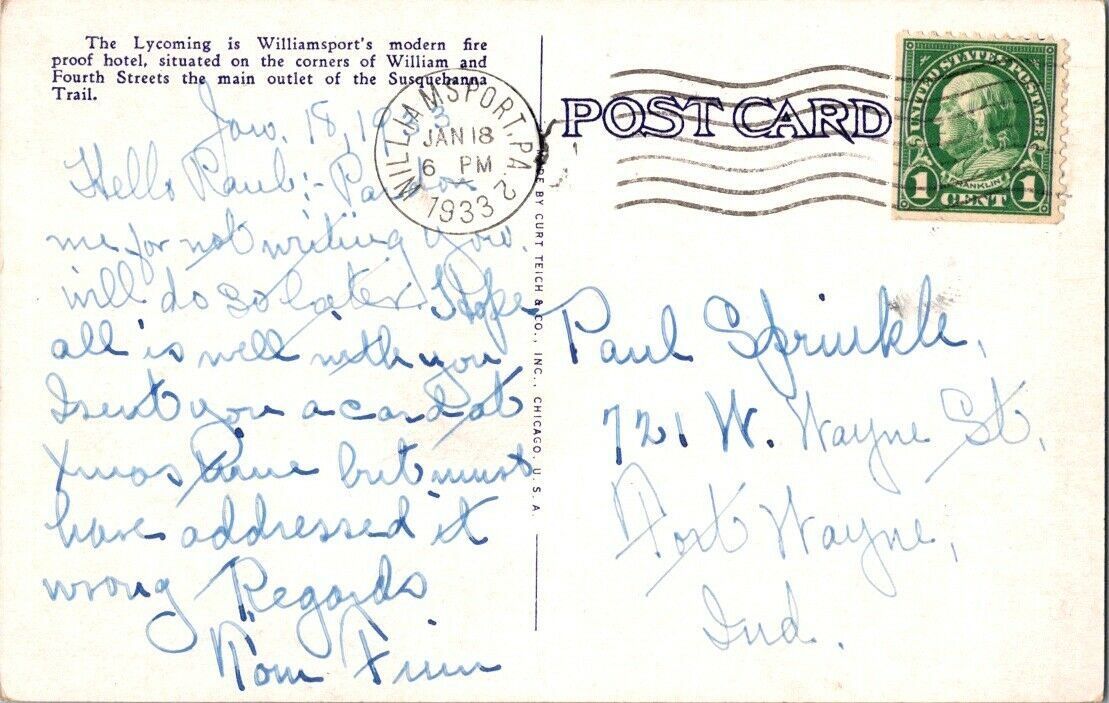 The Lycoming is Williamsport's modern fire
proof hotel, situated on the corners of William and
Fourth Streets the main outlet of the Susquehanna
Trail.
Jan. 18, 1933
Hello Paul:- Pardon
me for not writing you.
will do so later. Hope
all is well with you
I sent you a card at
Xmas time but must
have addressed it
wrong Regards
Tom Finn
WILLIAMSPORT, PA. 2
JAN 18
6 PM
1933
MADE BY CURT TEICH & CO., INC., CHICAGO, U. S. A.
POST CARD
UNITED STATES POSTAGE
FRANKLIN
1 CENT 1
Paul Sprinkle,
721 W. Wayne St,
Fort Wayne,
Ind.